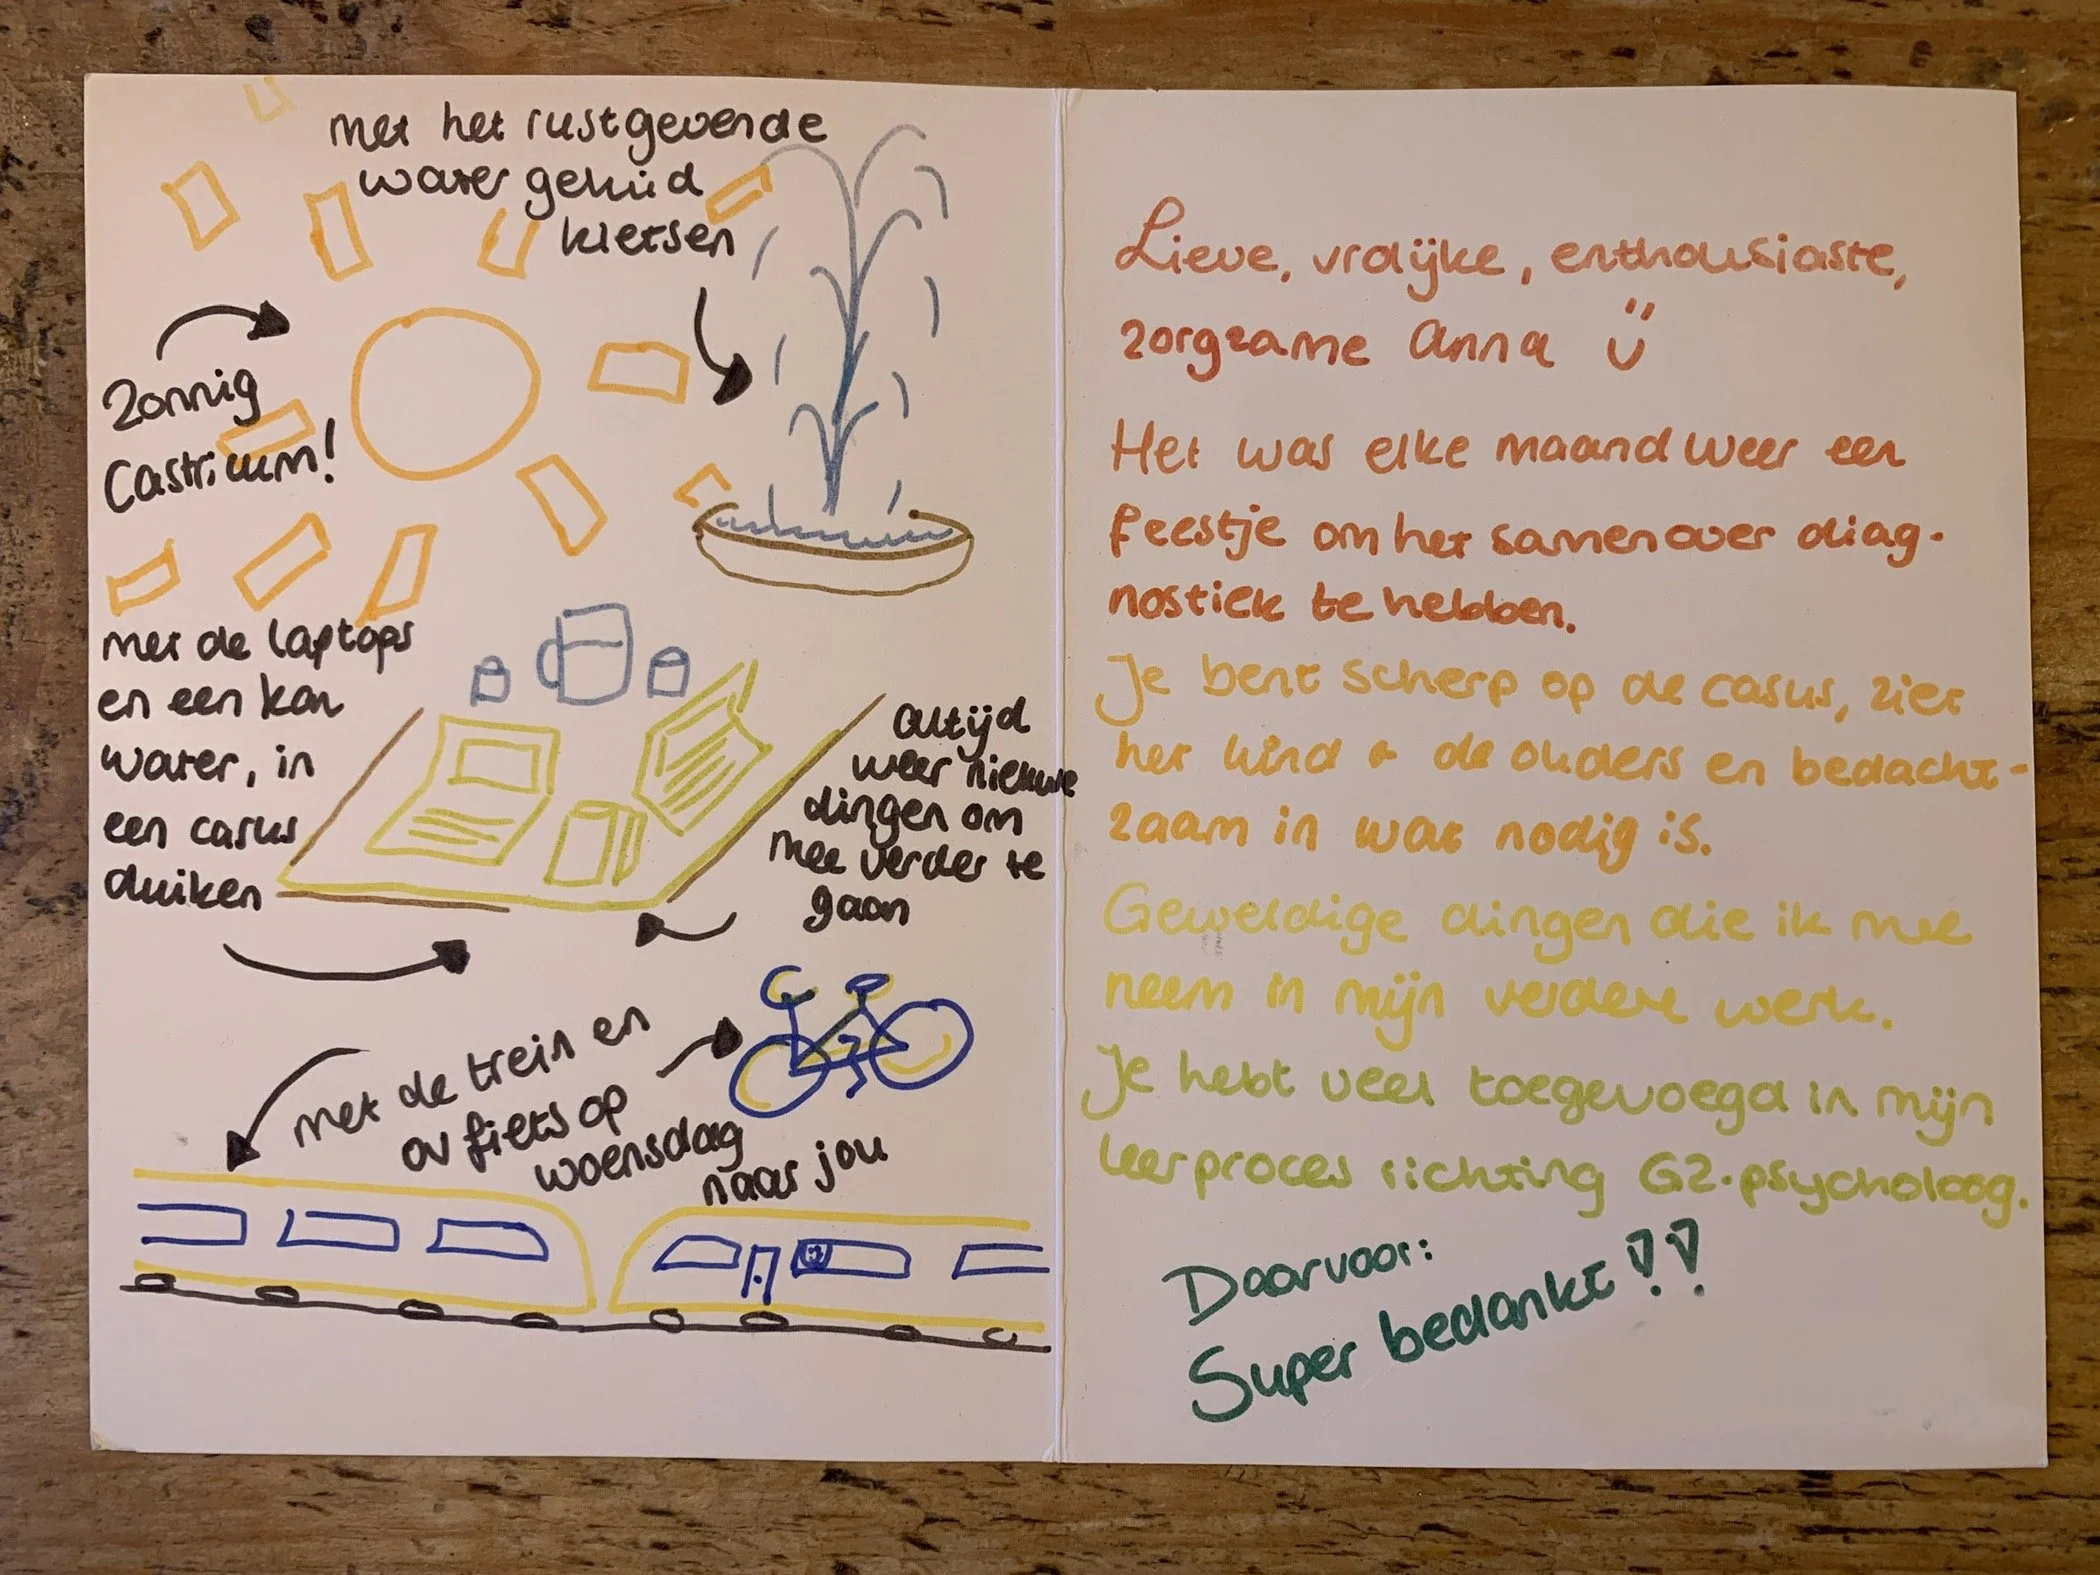 met het rustgevende
water geluid
kletsen
Zonnig
Castricum!
met de laptops
en een kan
water, in
een casus
duiken
altijd
weer nieuwe
dingen om
mee verder te
gaan
met de trein en
ov fiets op
woensdag
naar jou
Lieve, vrolijke, enthousiaste,
zorgzame Anna
Het was elke maand weer een
feestje om het samen over diag-
nostiek te hebben.
Je bent scherp op de casus, ziet
het kind & de ouders en bedacht-
zaam in wat nodig is.
Geweldige dingen die ik mee
neem in mijn verdere werk.
Je hebt veel toegevoegd in mijn
leerproces richting GZ-psycholoog.
Daarvoor:
Super bedankt!!